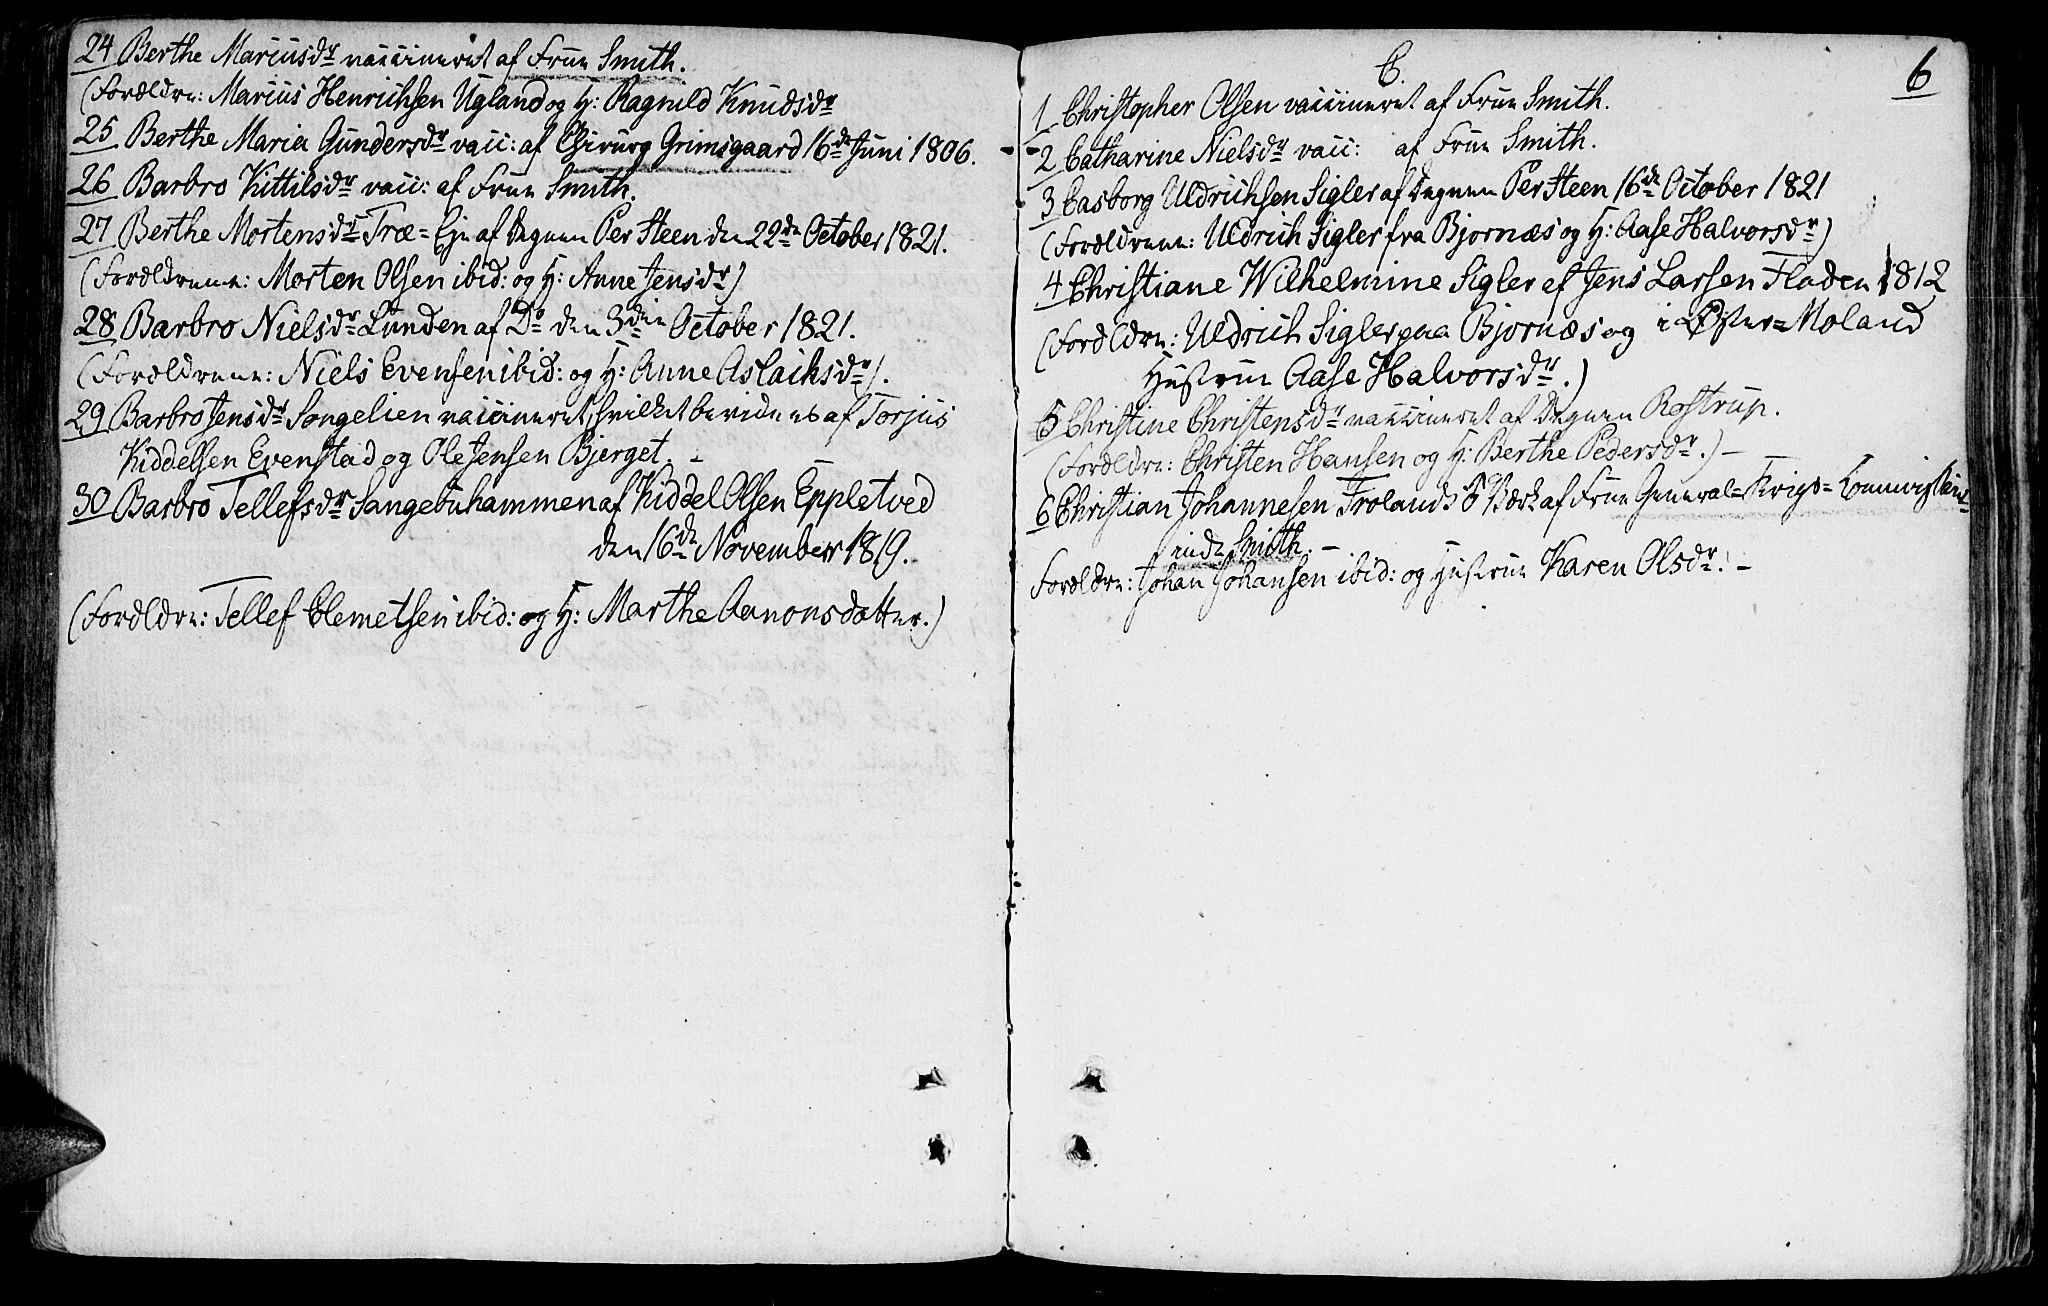 24 Berthe Mariusdr vaccineret af Frue Smith.
(Forældre: Marius Henrichsen Ugland og H: Ragnild Knudsdr
25 Berthe Maria Gundersdr vacc: af Chirurg Grimsgaard 16de Juni 1806.
26 Barbro Kittilsdr vacc: af Frue Smith.
27 Berthe Mortensdr Træ= af Degnen Per Steen den 22de October 1821.
(Forældrene: Morten Olsen ibid: og H: Anne Jensdr)
28 Barbro Nielsdr Lunden af Do den 3die October 1821.
(Forældrene: Niels Evensen ibid: og H: Anne Aslachsdr).
29 Barbro Jensdr Songelien vaccineret, hvilket bevidnes af Torjus
Kiddelsen Evenstad og Ole Jensen Bjerget. -
30 Barbro Tellefsdr Sangebuhammen af Kiddel Olsen Eppletved
den 16de November 1819.
(Forældre: Tellef Clemetsen ibid: og H: Marthe Aanonsdatter.)
C.
6
1 Christopher Olsen vaccineret af Frue Smith.
2 Catharine Nielsdr vacc: af Frue Smith.
3 Casborg Uldrichsen Sigler af Degnen Per Steen 16de October 1821
(Forældrene: Uldrich Sigler fra Bjornæs og H: Aase Halvorsdr)
4 Christiane Wilhelmine Sigler af Jens Larsen Fladen 1812
(Forældre: Uldrich Sigler paa Bjornæs og i Øster=Moland
Hustrue Aase Halvorsdr.)
5 Christine Christensdr vaccineret af Degnen Rostrup.
(Forældre: Christen Hansen og H: Berthe Pedersdr.) -
6 Christian Johannesen Frolands Værk af Frue General=Krigs=Commissair
inde Smith. -
Forældre: Johan Johansen ibid: og Hustrue Karen Olsdr. -